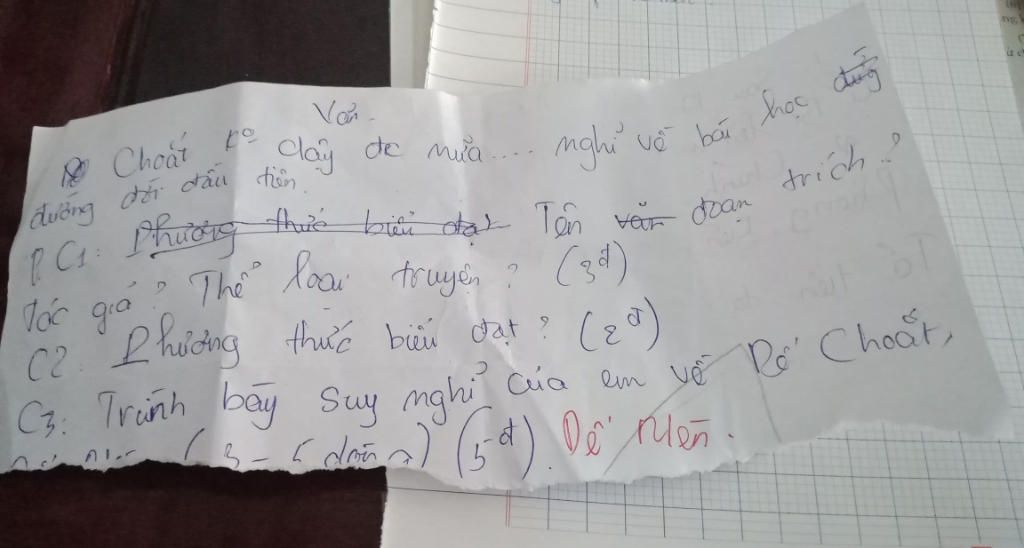 Văn.
Choắt ko dậy đc nữa.... nghĩ về bài học
đường đời đầu tiên.
C1: Phương thức biểu đạt Tên văn đoạn trích?
Tác giả? Thể loại truyện? (3đ)
C2: Phương thức biểu đạt? (2đ)
C3: Trình bày suy nghĩ của em về Dế Choắt,
(3 - 5 dòng) (5đ). Dế Mèn.